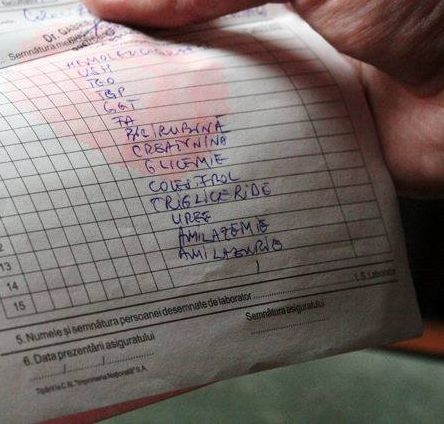 Semnătura
HEMOLEUCOGRAMA
VSH
TGO
TGP
GGT
FA
BILIRUBINĂ
CREATININA
GLICEMIE
COLESTROL
TRIGLICERIDE
UREE
AMILAZEMIE
AMILAZURIE
13
14
15
L.S. Laborator
5. Numele și semnătura persoanei desemnate de laborator
6. Data prezentării asiguratului
Semnătura asiguratului
Tipărit la C.N. "Imprimeria Națională" S.A.